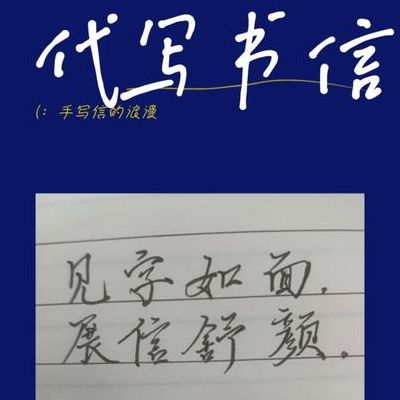 代写书信
(: 手写信的浪漫
见字如面.
展信舒颜.